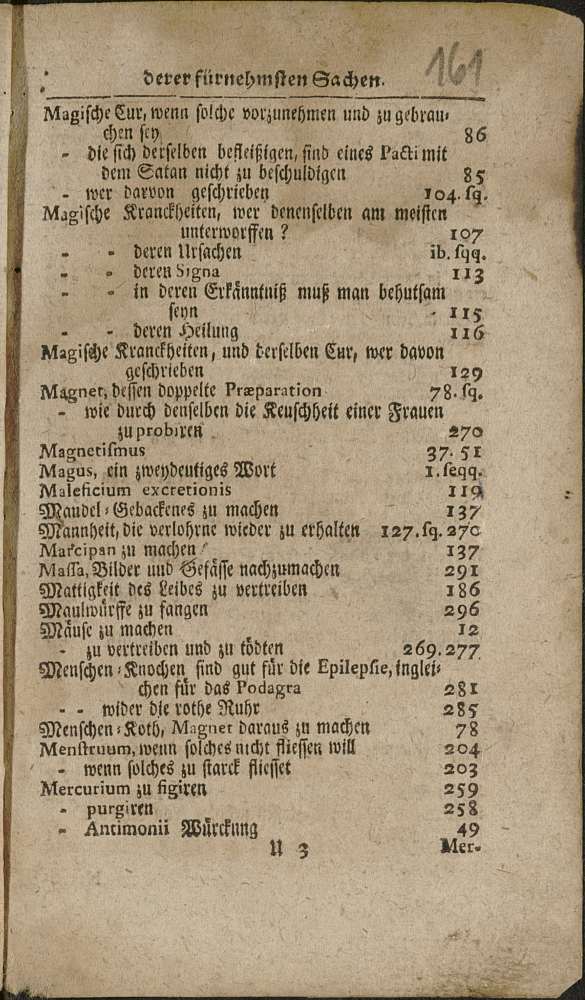 161
derer fürnehmsten Sachen.
Magische Cur, wenn solche vorzunehmen und zu gebrau-
chen sey 86
- die sich derselben befleißigen, sind eines Pacti mit
dem Satan nicht zu beschuldigen 85
- wer darvon geschrieben 104. sq.
Magische Kranckheiten, wer denenselben am meisten
unterworffen ? 107
- - deren Ursachen ib. sqq.
- - deren Signa 113
- - in deren Erkänntniß muß man behutsam
seyn 115
- - deren Heilung 116
Magische Kranckheiten, und derselben Cur, wer davon
geschrieben 129
Magnet, dessen doppelte Præparation 78. sq.
- wie durch denselben die Keuschheit einer Frauen
zu probiren 270
Magnetismus 37. 51
Magus, ein zweydeutiges Wort 1. seqq.
Maleficium excretionis 119
Mandel-Gebackenes zu machen 137
Mannheit, die verlohrne wieder zu erhalten 127. sq. 270
Marcipan zu machen 137
Massa, Bilder und Gefässe nachzumachen 291
Mattigkeit des Leibes zu vertreiben 186
Maulwürffe zu fangen 296
Mäuse zu machen 12
- zu vertreiben und zu tödten 269. 277
Menschen-Knochen sind gut für die Epilepsie, inglei-
chen für das Podagra 281
- - wider die rothe Ruhr 285
Menschen-Koth, Magnet daraus zu machen 78
Menstruum, wenn solches nicht fliessen will 204
- wenn solches zu starck fliesset 203
Mercurium zu figiren 259
- purgiren 258
- Antimonii Würckung 49
U 3 Mer-